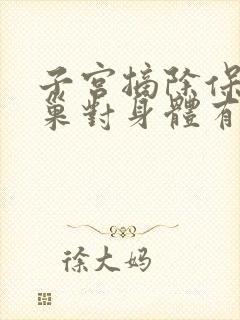 子宫摘除保
巢對身體有
徐大妈